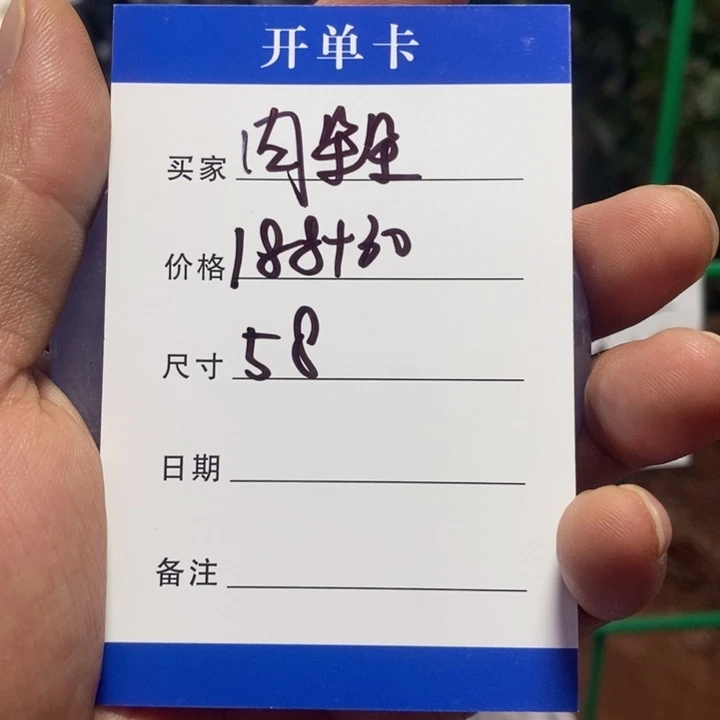 开单卡
买家 肉
价格 188+60
尺寸 58
日期
备注